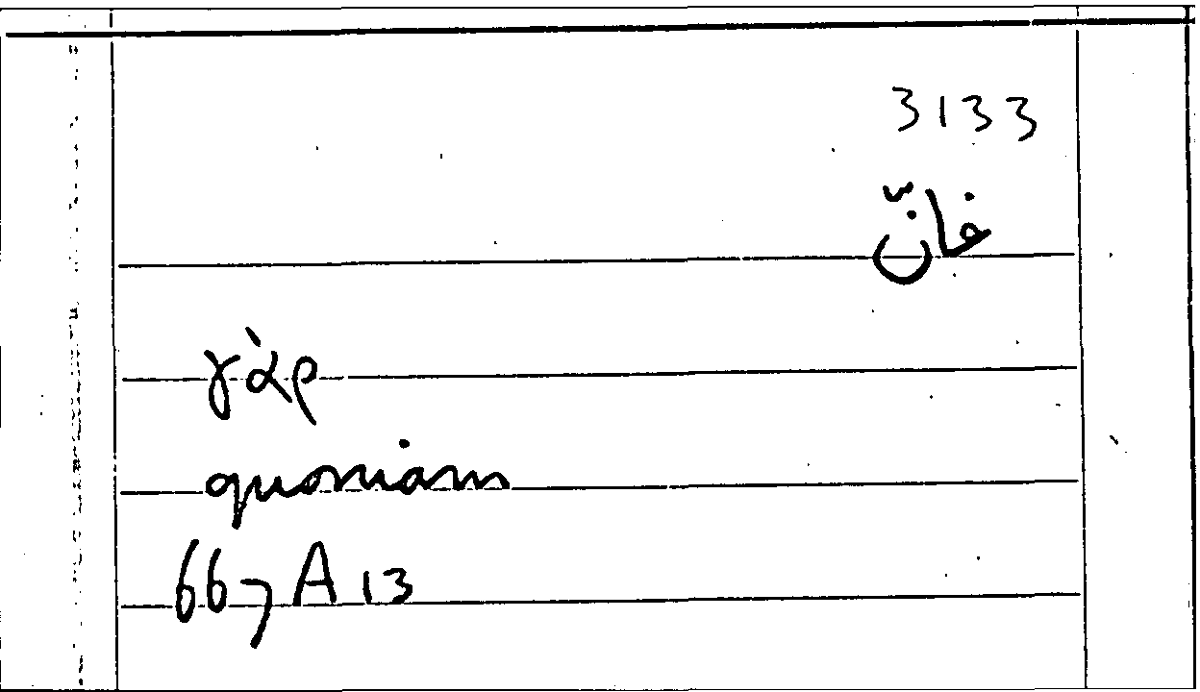 3133
فانّ
γὰρ
quoniam
667 A 13